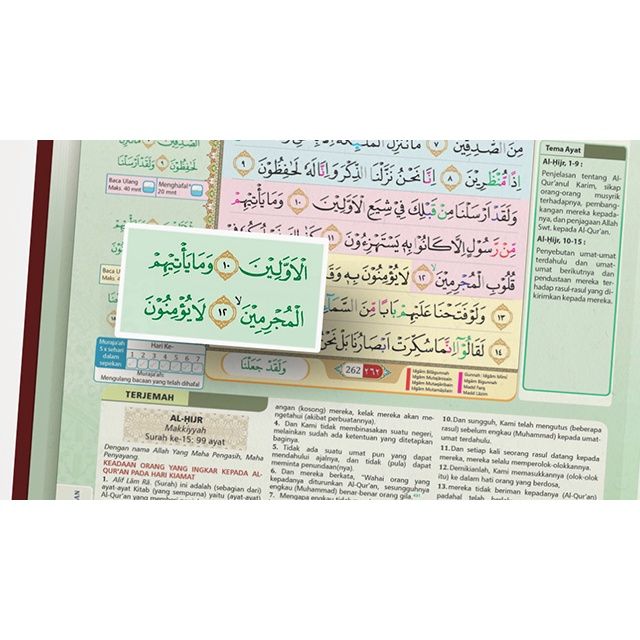 الصّٰدِقِيْنَ ٦ مَا نُنَزِّلُ
لَحٰفِظُوْنَ ٩ وَلَقَدْ اَرْسَلْنَا
Baca Ulang
Maks. 40 mnt
Menghafal
20 mnt
مِنَ الصّٰدِقِيْنَ ٧ مَا نُنَزِّلُ الْمَلٰۤىِٕكَةَ اِلَّا
اِذًا مُّنْظَرِيْنَ ٨ اِنَّا نَحْنُ نَزَّلْنَا الذِّكْرَ وَاِنَّا لَهٗ لَحٰفِظُوْنَ ٩
وَلَقَدْ اَرْسَلْنَا مِنْ قَبْلِكَ فِيْ شِيَعِ الْاَوَّلِيْنَ ١٠ وَمَا يَأْتِيْهِمْ
مِّنْ رَّسُوْلٍ اِلَّا كَانُوْا بِهٖ يَسْتَهْزِءُوْنَ ١١ كَذٰلِكَ نَسْلُكُهٗ فِيْ
قُلُوْبِ الْمُجْرِمِيْنَ ۙ ١٢ لَا يُؤْمِنُوْنَ بِهٖ وَقَدْ
١٣ وَلَوْ فَتَحْنَا عَلَيْهِمْ بَابًا مِّنَ السَّمَاۤءِ
لَقَالُوْٓا اِنَّمَا سُكِّرَتْ اَبْصَارُنَا بَلْ نَحْنُ
١٤
الْاَوَّلِيْنَ ١٠ وَمَا يَأْتِيْهِمْ
الْمُجْرِمِيْنَ ۙ ١٢ لَا يُؤْمِنُوْنَ
Baca Ulang
Maks. 4
Muraja'ah
5 x sehari
dalam
sepekan
Hari Ke-
1 2 3 4 5 6 7
Muraja'ah:
Mengulang bacaan yang telah dihafal
وَلَقَدْ جَعَلْنَا
262 ٢٦٢
Idgām Bilāgunnah
Idgām Mutajānisain
Idgām Mutaqāribain
Idgām Mutamāṡilain
Gunnah : Idgām Mīmī
Idgām Bigunnah
Madd Farq
Madd Lāzim
Tema Ayat
Al-Ḥijr, 1-9 :
Penjelasan tentang Al-
Qur'anul Karim, sikap
orang-orang musyrik
terhadapnya, pembang-
kangan mereka kepada-
nya, dan penjagaan Allah
Swt. kepada Al-Qur'an.
Al-Ḥijr, 10-15 :
Penyebutan umat-umat
terdahulu dan umat-
umat berikutnya dan
pendustaan mereka ter-
hadap rasul-rasul yang di-
kirimkan kepada mereka.
TERJEMAH
AL-ḤIJR
Makkiyyah
Surah ke-15: 99 ayat
Dengan nama Allah Yang Maha Pengasih, Maha
Penyayang.
KEADAAN ORANG YANG INGKAR KEPADA AL-
QUR'AN PADA HARI KIAMAT
1. Alif Lām Rā. (Surah) ini adalah (sebagian dari)
ayat-ayat Kitab (yang sempurna) yaitu (ayat-ayat)
angan (kosong) mereka, kelak mereka akan me-
ngetahui (akibat perbuatannya).
4. Dan Kami tidak membinasakan suatu negeri,
melainkan sudah ada ketentuan yang ditetapkan
baginya.
5. Tidak ada suatu umat pun yang dapat
mendahului ajalnya, dan tidak (pula) dapat
meminta penundaan(nya).
6. Dan mereka berkata, "Wahai orang yang
kepadanya diturunkan Al-Qur'an, sesungguhnya
engkau (Muhammad) benar-benar orang gila.
7. Mengapa engkau tidak
10. Dan sungguh, Kami telah mengutus (beberapa
rasul) sebelum engkau (Muhammad) kepada umat-
umat terdahulu.
11. Dan setiap kali seorang rasul datang kepada
mereka, mereka selalu memperolok-olokkannya.
12. Demikianlah, Kami memasukkannya (olok-olok
itu) ke dalam hati orang yang berdosa,
13. mereka tidak beriman kepadanya (Al-Qur'an)
padahal telah